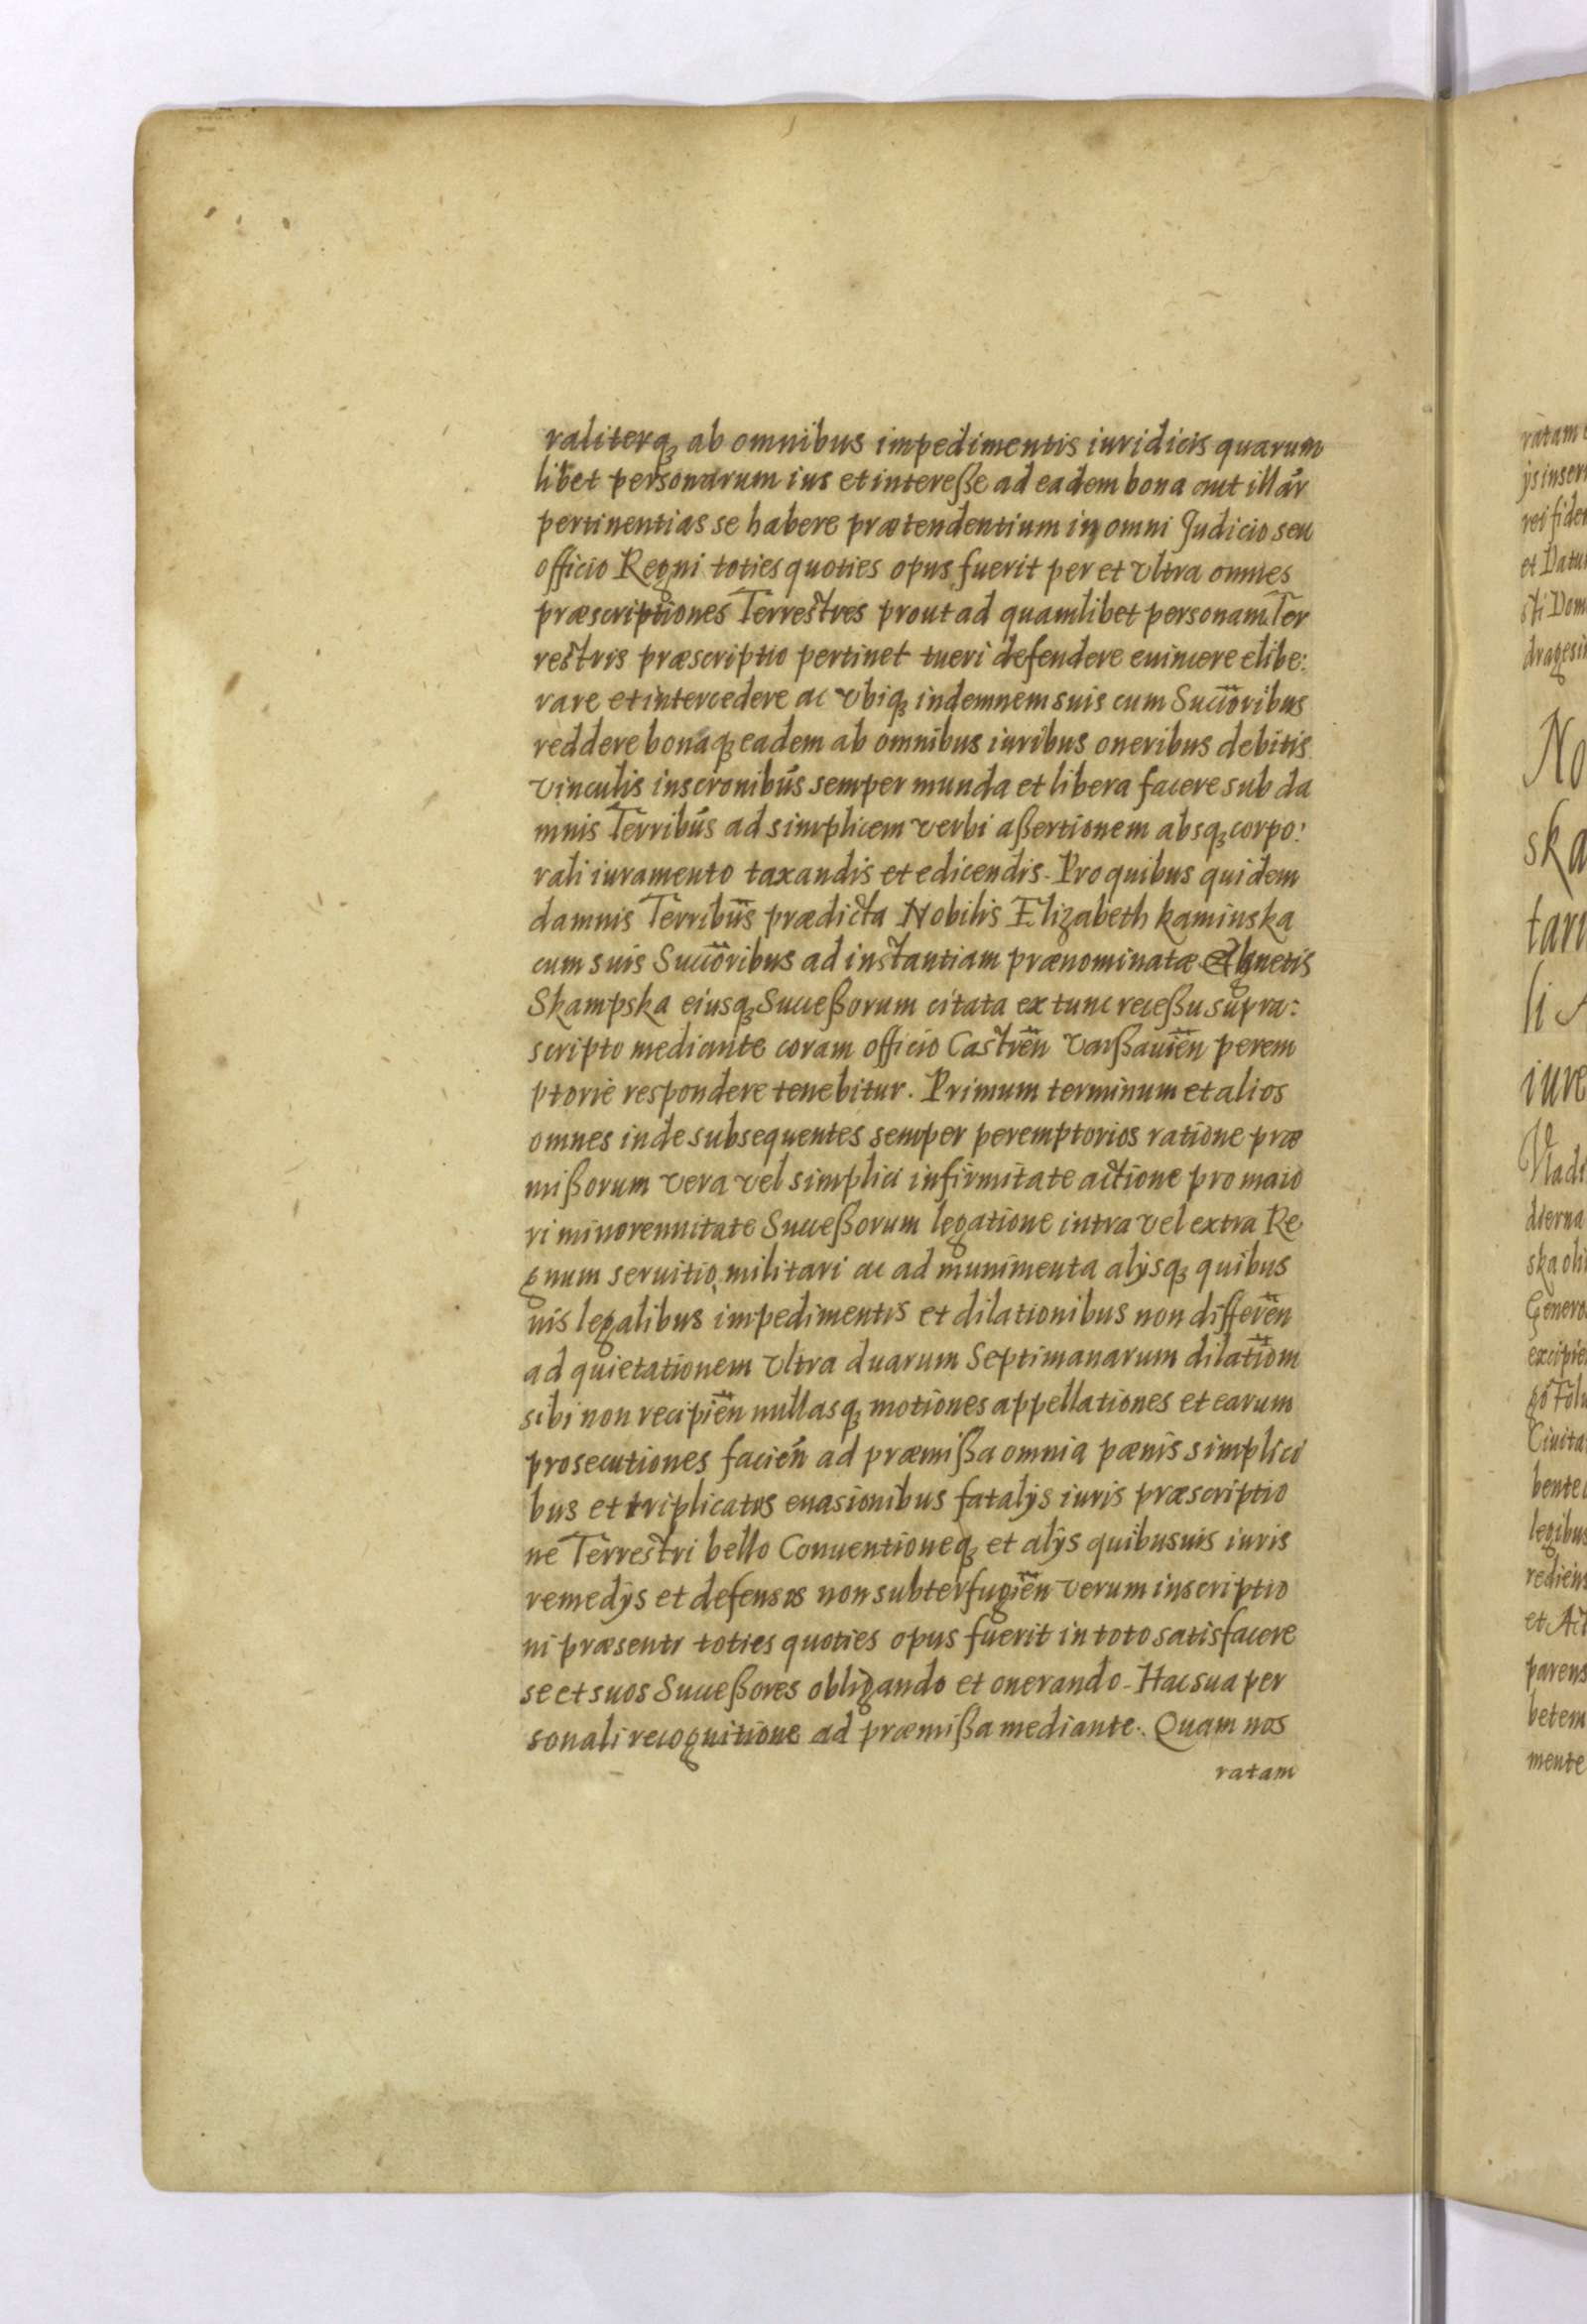 raliterqꝫ ab omnibus impedimentis iuridicis quarum
libet personarum ius et intereße ad eadem bona aut illar̃
pertinentias se habere prætendentium in omni Judicio seu
officio Regni toties quoties opus fuerit per et vltra omnes
præscriptiones Terrestres prout ad quamlibet personam Ter
restris præscriptio pertinet tueri defendere euincere elibe:
rare et intercedere ac vbiqꝫ indemnem suis cum Succõribus
reddere bonaqꝫ eadem ab omnibus iuribus oneribus debitis
vinculis inscronibús semper munda et libera facere sub da
mnis Terribús ad simplicem verbi aßertionem absqꝫ corpo:
rali iuramento taxandis et edicendis. Pro quibus quidem
damnis Terribũs prædicta Nobilis Elizabeth kaminska
cum suis Succõribus ad instantiam prænominatæ Agnetis
Skampska eiusqꝫ Succeßorum citata ex tunc receßu supra:
scripto mediante coram officio Castreñ Varßauieñ perem
ptorie respondere tenebitur. Primum terminum et alios
omnes inde subsequentes semper peremptorios ratione præ
mißorum vera vel simplici infirmitate actione pro maio
ri minorennitate Succeßorum legatione intra vel extra Re
gnum seruitio militari ac ad munimenta alijsqꝫ quibus
uis legalibus impedimentis et dilationibus non differeñ
ad quietationem vltra duarum Septimanarum dilatiom̃
sibi non recipieñ nullasqꝫ motiones appellationes et earum
prosecutiones facień ad præmißa omnia pænis simplici
bus et triplicatis euasionibus fatalijs iuris præscriptio
ne Terrestri bello Conuentioneqꝫ et alijs quibusuis iuris
remedijs et defensis non subterfugieñ verum inscriptio
ni præsenti toties quoties opus fuerit in toto satisfacere
se et suos Succeßores obligando et onerando. Hac sua per
sonali recognitione ad præmißa mediante. Quam nos
ratam